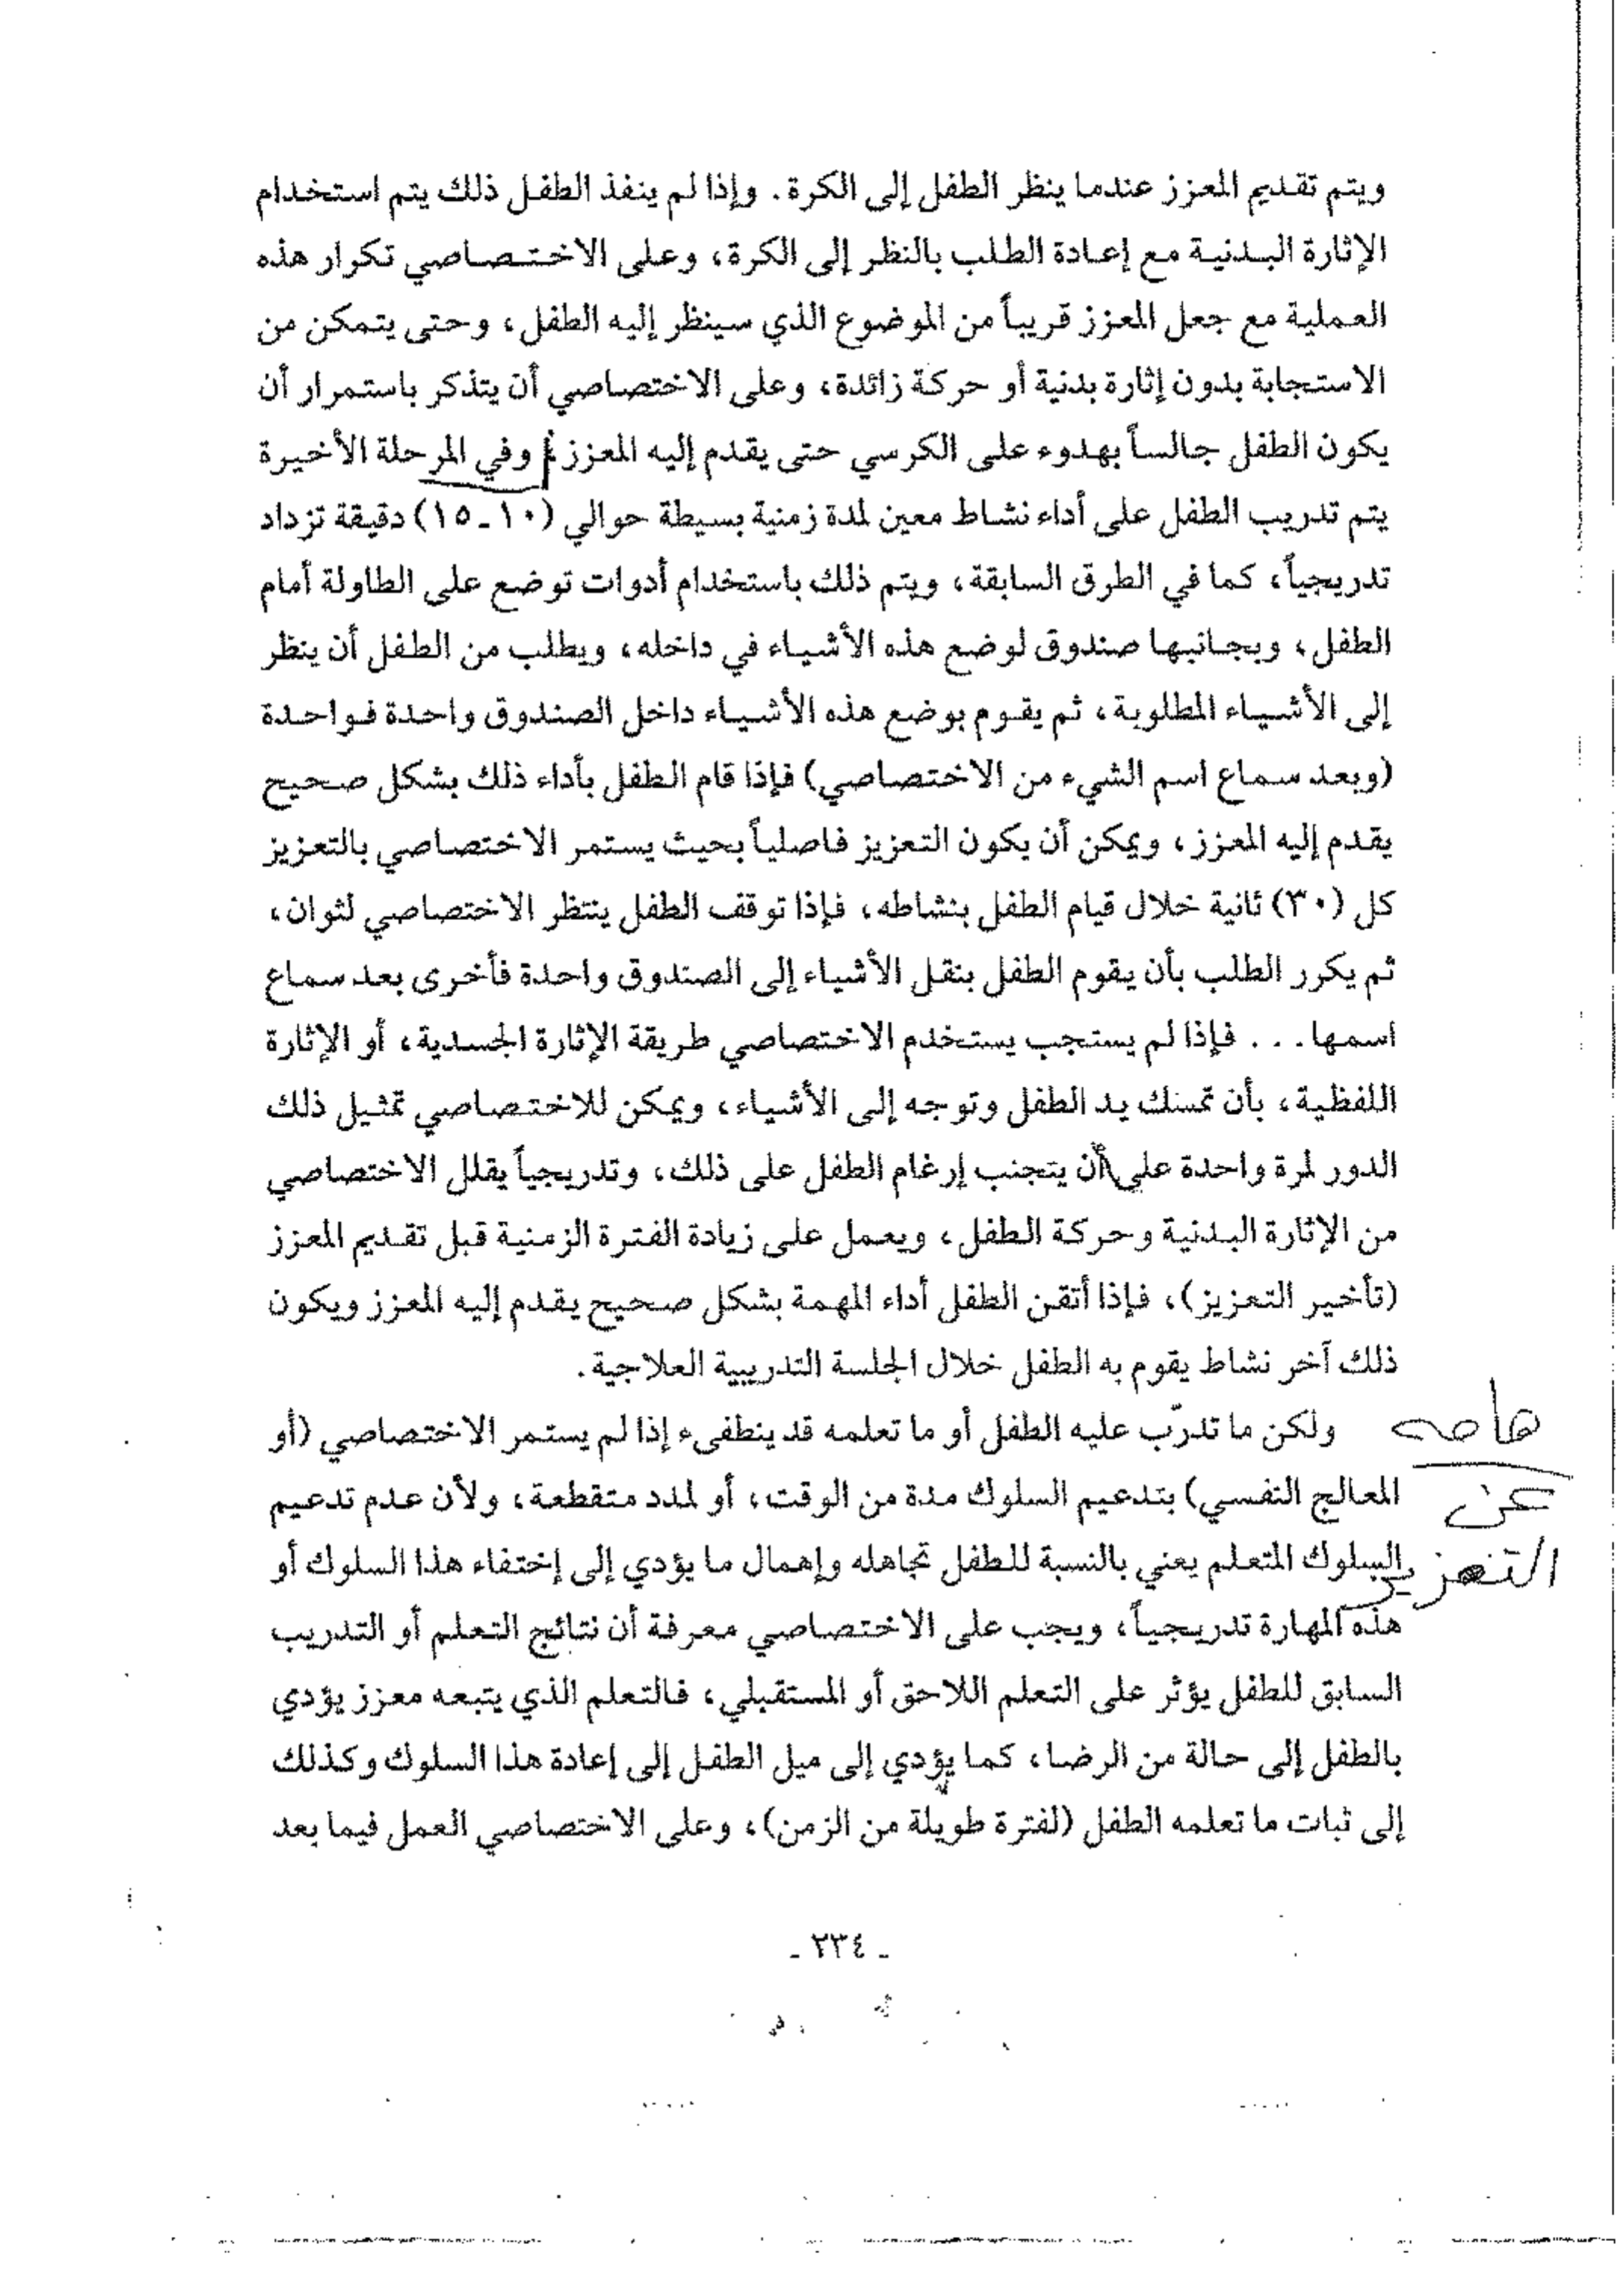 ويتم تقديم المعزز عندما ينظر الطفل إلى الكرة. وإذا لم ينفذ الطفل ذلك يتم استخدام
الإثارة البدنية مع إعادة الطلب بالنظر إلى الكرة، وعلى الاختصاصي تكرار هذه
العملية مع جعل المعزز قريباً من الموضوع الذي سينظر إليه الطفل، وحتى يتمكن من
الاستجابة بدون إثارة بدنية أو حركة زائدة، وعلى الاختصاصي أن يتذكر باستمرار أن
يكون الطفل جالساً بهدوء على الكرسي حتى يقدم إليه المعزز، وفي المرحلة الأخيرة
يتم تدريب الطفل على أداء نشاط معين لمدة زمنية بسيطة حوالي (١٠-١٥) دقيقة تزداد
تدريجياً، كما في الطرق السابقة، ويتم ذلك باستخدام أدوات توضع على الطاولة أمام
الطفل، وبجانبها صندوق لوضع هذه الأشياء في داخله، ويطلب من الطفل أن ينظر
إلى الأشياء المطلوبة، ثم يقوم بوضع هذه الأشياء داخل الصندوق واحدة فواحدة
(وبعد سماع اسم الشيء من الاختصاصي) فإذا قام الطفل بأداء ذلك بشكل صحيح
يقدم إليه المعزز، ويمكن أن يكون التعزيز فاصلياً بحيث يستمر الاختصاصي بالتعزيز
كل (٣٠) ثانية خلال قيام الطفل بنشاطه، فإذا توقف الطفل ينتظر الاختصاصي لثوان،
ثم يكرر الطلب بأن يقوم الطفل بنقل الأشياء إلى الصندوق واحدة فأخرى بعد سماع
اسمها... فإذا لم يستجب يستخدم الاختصاصي طريقة الإثارة الجسدية، أو الإثارة
اللفظية، بأن تمسك يد الطفل وتوجه إلى الأشياء، ويمكن للاختصاصي تمثيل ذلك
الدور لمرة واحدة على أن يتجنب إرغام الطفل على ذلك، وتدريجياً يقلل الاختصاصي
من الإثارة البدنية وحركة الطفل، ويعمل على زيادة الفترة الزمنية قبل تقديم المعزز
(تأخير التعزيز)، فإذا أتقن الطفل أداء المهمة بشكل صحيح يقدم إليه المعزز ويكون
ذلك آخر نشاط يقوم به الطفل خلال الجلسة التدريبية العلاجية.
ولكن ما تدرّب عليه الطفل أو ما تعلمه قد ينطفىء إذا لم يستمر الاختصاصي (أو
المعالج النفسي) بتدعيم السلوك مدة من الوقت، أو لمدد متقطعة، ولأن عدم تدعيم
السلوك المتعلم يعني بالنسبة للطفل تجاهله وإهمال ما يؤدي إلى إختفاء هذا السلوك أو
هذه المهارة تدريجياً، ويجب على الاختصاصي معرفة أن نتائج التعلم أو التدريب
السابق للطفل يؤثر على التعلم اللاحق أو المستقبلي، فالتعلم الذي يتبعه معزز يؤدي
بالطفل إلى حالة من الرضا، كما يؤدي إلى ميل الطفل إلى إعادة هذا السلوك وكذلك
إلى ثبات ما تعلمه الطفل (لفترة طويلة من الزمن)، وعلى الاختصاصي العمل فيما بعد
- ٢٣٤ -
عن
التعزيز